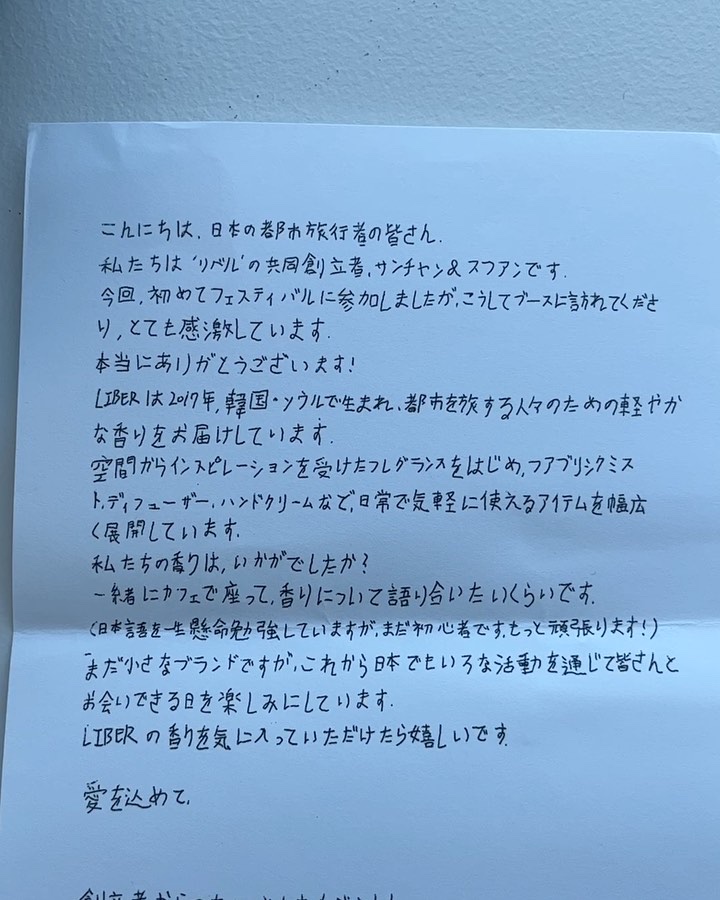 こんにちは、日本の都市旅行者の皆さん.
私たちは 'リベル' の共同創立者、サンチャン&スフアンです.
今回, 初めてフェスティバルに参加しましたが、こうしてブースに訪れてくださ
り, とても感激しています.
本当にありがとうございます!
LIBERは2017年, 韓国・ソウルで生まれ、都市を旅する人々のための軽やか
な香りをお届けしています.
空間からインスピレーションを受けたフレグランスをはじめ, ファブリックミス
ト、ディフューザー、ハンドクリームなど、日常で気軽に使えるアイテムを幅広
く展開しています.
私たちの香りは, いかがでしたか?
一緒にカフェで座って, 香りについて語り合いたいくらいです.
(日本語を一生懸命勉強していますが、まだ初心者です. もっと頑張ります!)
まだ小さなブランドですが、これから日本でもいろな活動を通じて皆さんと
お会いできる日を楽しみにしています.
LIBERの香りを気に入っていただけたら嬉しいです.
愛を込めて、